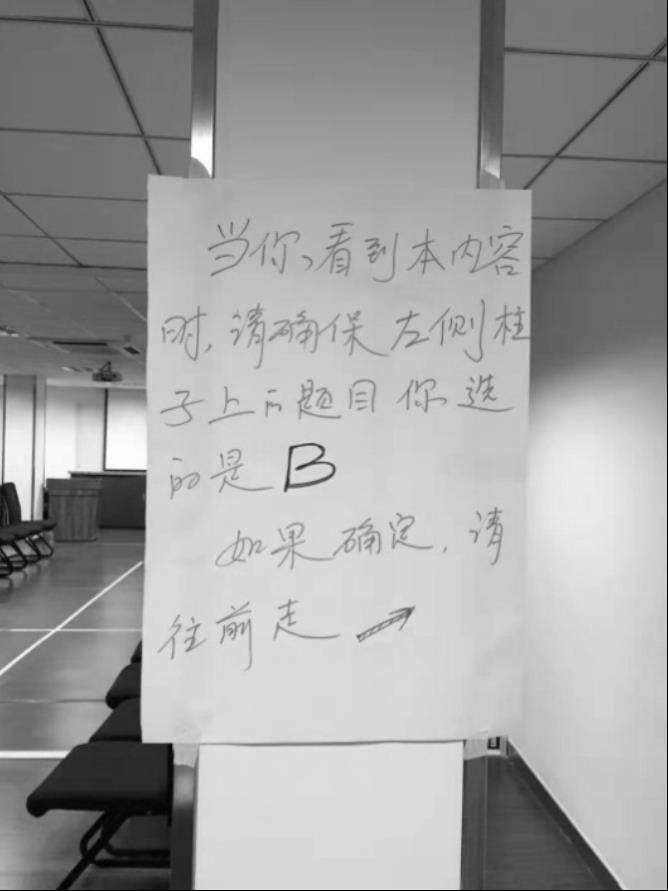 当你看到本内容
时,请确保左侧柱
子上的题目你选
的是B
如果确定,请
往前走